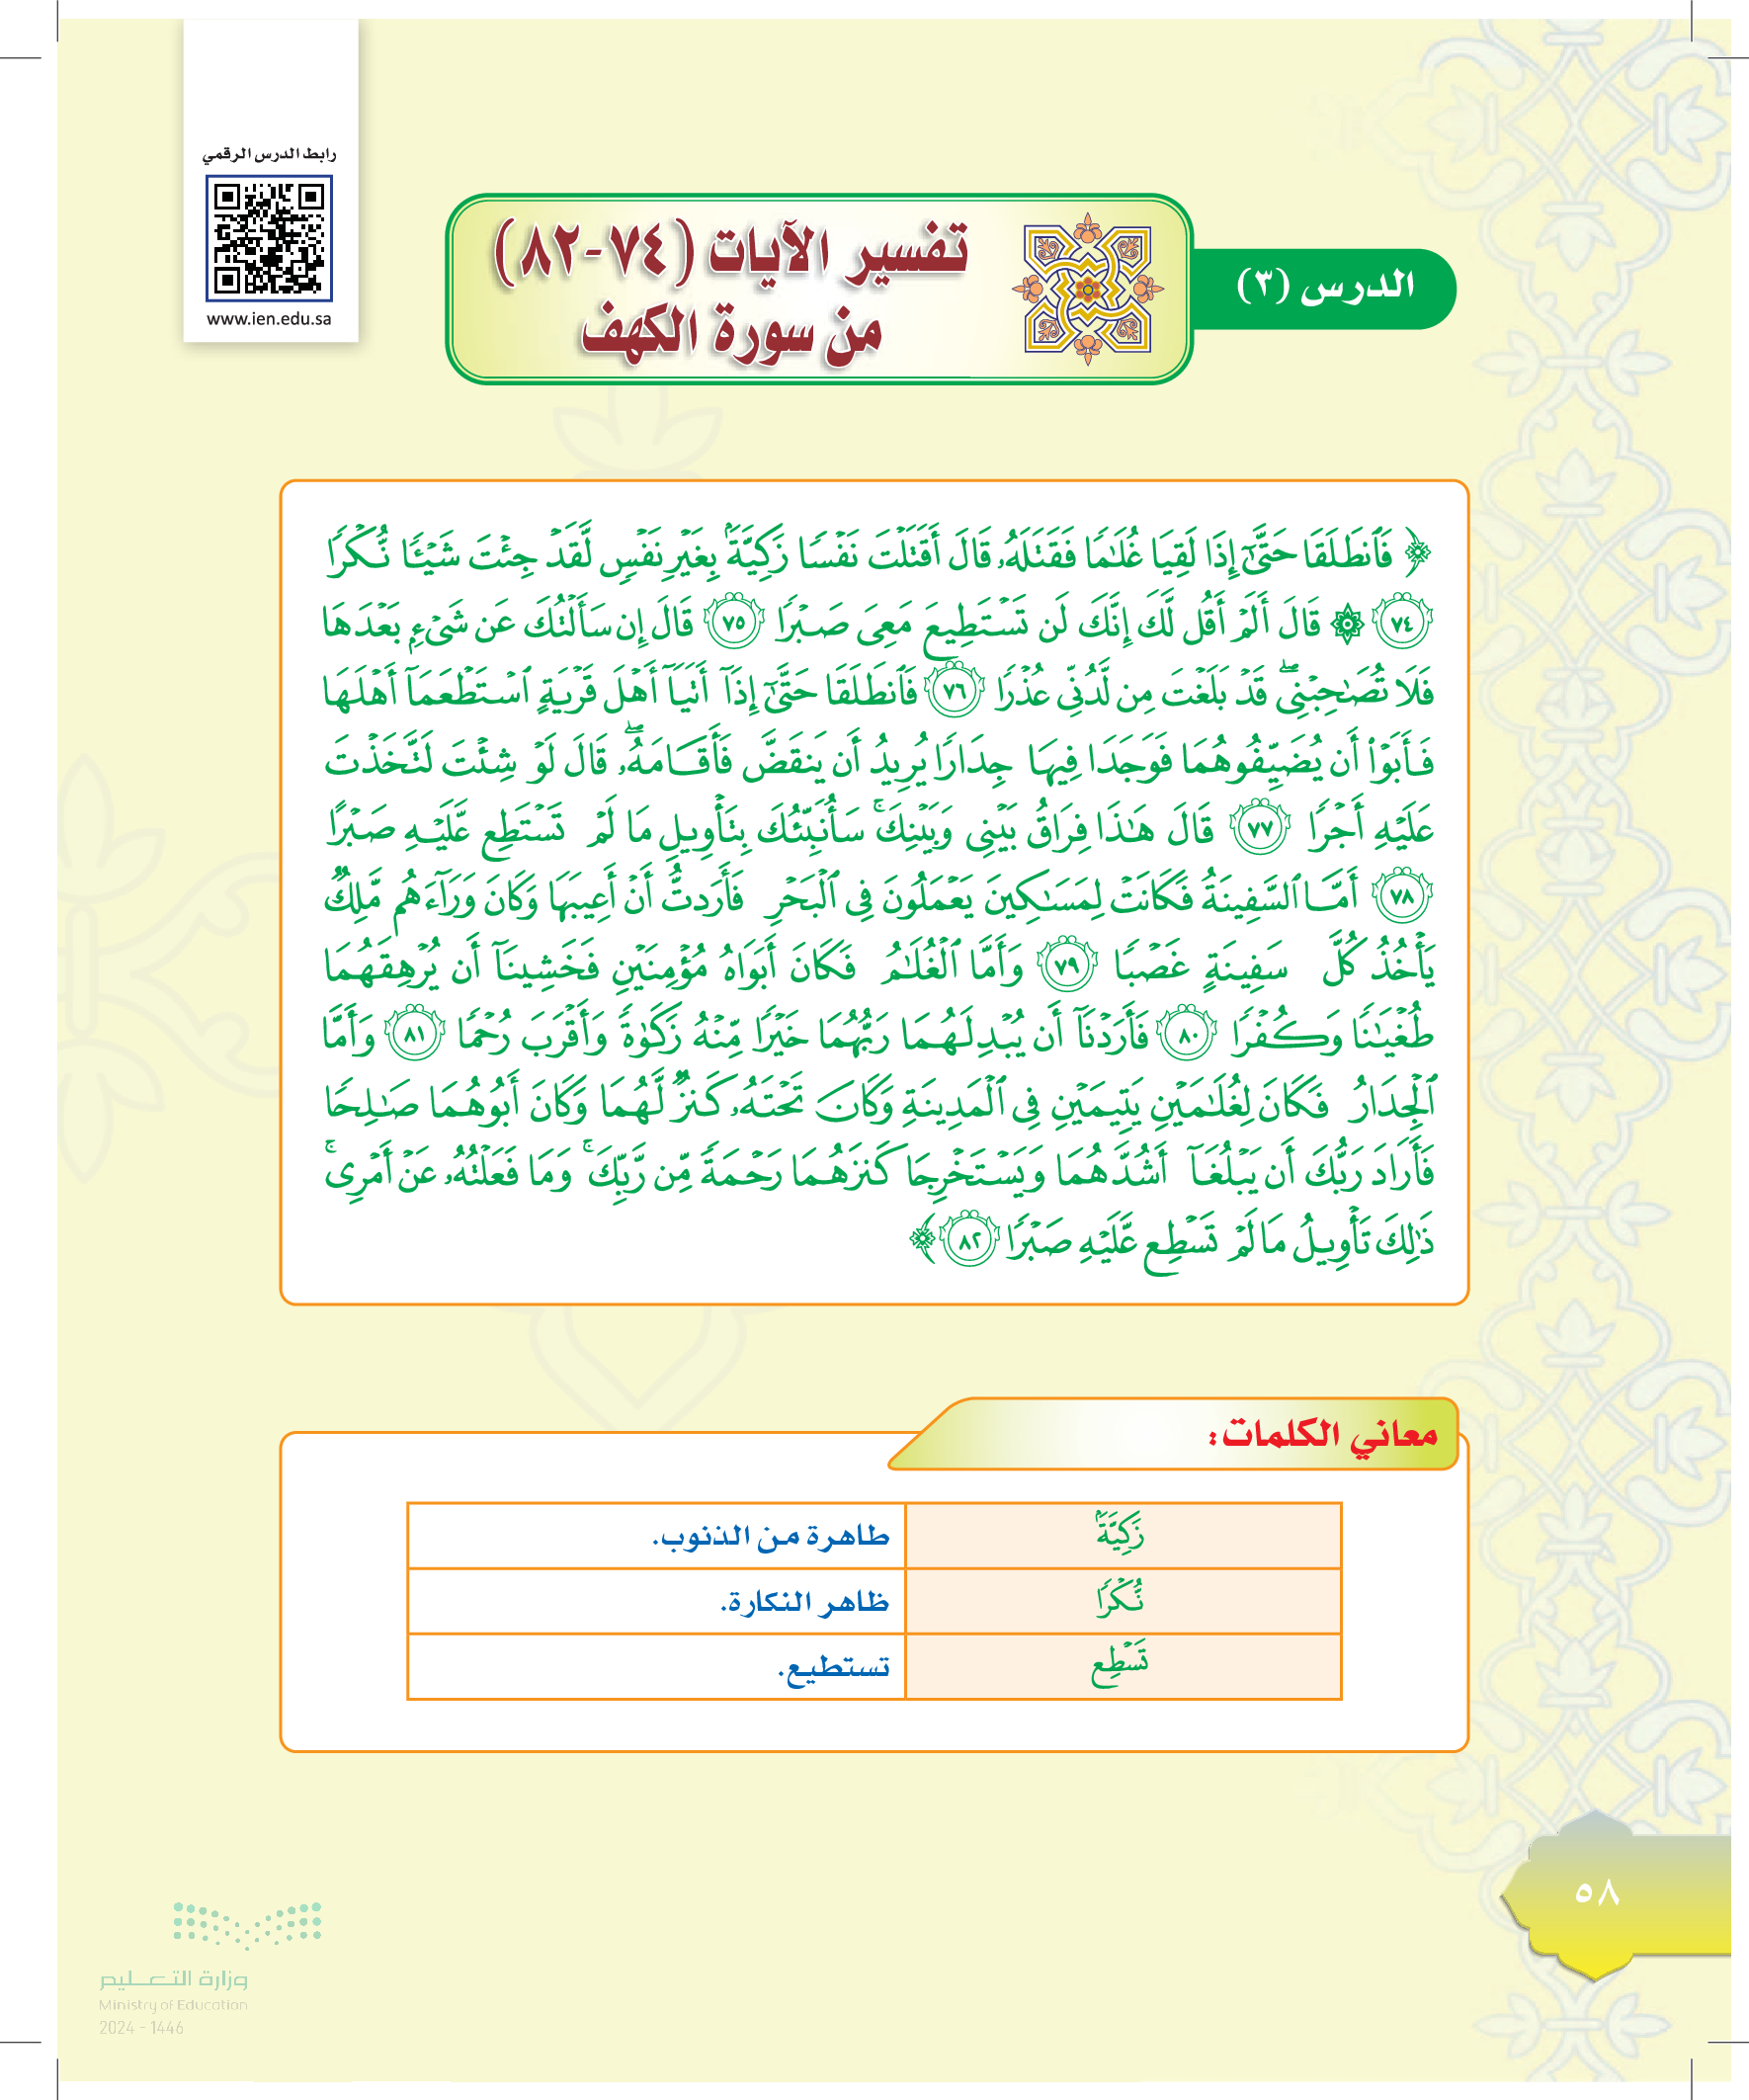 رابط الدرس الرقمي
www.ien.edu.sa
الدرس (٣)
تفسير الآيات (٧٤-٨٢)
من سورة الكهف
﴿ فَٱنطَلَقَا حَتَّىٰٓ إِذَا لَقِيَا غُلَٰمٗا فَقَتَلَهُۥ قَالَ أَقَتَلۡتَ نَفۡسٗا زَكِيَّةَۢ بِغَيۡرِ نَفۡسٖ لَّقَدۡ جِئۡتَ شَيۡـٔٗا نُّكۡرٗا
٧٤ ۞ قَالَ أَلَمۡ أَقُل لَّكَ إِنَّكَ لَن تَسۡتَطِيعَ مَعِيَ صَبۡرٗا ٧٥ قَالَ إِن سَأَلۡتُكَ عَن شَيۡءِۭ بَعۡدَهَا
فَلَا تُصَٰحِبۡنِيۖ قَدۡ بَلَغۡتَ مِن لَّدُنِّي عُذۡرٗا ٧٦ فَٱنطَلَقَا حَتَّىٰٓ إِذَآ أَتَيَآ أَهۡلَ قَرۡيَةٍ ٱسۡتَطۡعَمَآ أَهۡلَهَا
فَأَبَوۡاْ أَن يُضَيِّفُوهُمَا فَوَجَدَا فِيهَا جِدَارٗا يُرِيدُ أَن يَنقَضَّ فَأَقَامَهُۥۖ قَالَ لَوۡ شِئۡتَ لَتَّخَذۡتَ
عَلَيۡهِ أَجۡرٗا ٧٧ قَالَ هَٰذَا فِرَاقُ بَيۡنِي وَبَيۡنِكَۚ سَأُنَبِّئُكَ بِتَأۡوِيلِ مَا لَمۡ تَسۡتَطِع عَّلَيۡهِ صَبۡرًا
٧٨ أَمَّا ٱلسَّفِينَةُ فَكَانَتۡ لِمَسَٰكِينَ يَعۡمَلُونَ فِي ٱلۡبَحۡرِ فَأَرَدتُّ أَنۡ أَعِيبَهَا وَكَانَ وَرَآءَهُم مَّلِكٞ
يَأۡخُذُ كُلَّ سَفِينَةٍ غَصۡبٗا ٧٩ وَأَمَّا ٱلۡغُلَٰمُ فَكَانَ أَبَوَاهُ مُؤۡمِنَيۡنِ فَخَشِينَآ أَن يُرۡهِقَهُمَا
طُغۡيَٰنٗا وَكُفۡرٗا ٨٠ فَأَرَدۡنَآ أَن يُبۡدِلَهُمَا رَبُّهُمَا خَيۡرٗا مِّنۡهُ زَكَوٰةٗ وَأَقۡرَبَ رُحۡمٗا ٨١ وَأَمَّا
ٱلۡجِدَارُ فَكَانَ لِغُلَٰمَيۡنِ يَتِيمَيۡنِ فِي ٱلۡمَدِينَةِ وَكَانَ تَحۡتَهُۥ كَنزٞ لَّهُمَا وَكَانَ أَبُوهُمَا صَٰلِحٗا
فَأَرَادَ رَبُّكَ أَن يَبۡلُغَآ أَشُدَّهُمَا وَيَسۡتَخۡرِجَا كَنزَهُمَا رَحۡمَةٗ مِّن رَّبِّكَۚ وَمَا فَعَلۡتُهُۥ عَنۡ أَمۡرِيۚ
ذَٰلِكَ تَأۡوِيلُ مَا لَمۡ تَسۡطِع عَّلَيۡهِ صَبۡرٗا ٨٢ ﴾
معاني الكلمات:
زَكِيَّةَۢ طاهرة من الذنوب.
نُّكۡرٗا ظاهر النكارة.
تَسۡطِع تستطيع.
٥٨
وزارة التعليم
Ministry of Education
2024 - 1446